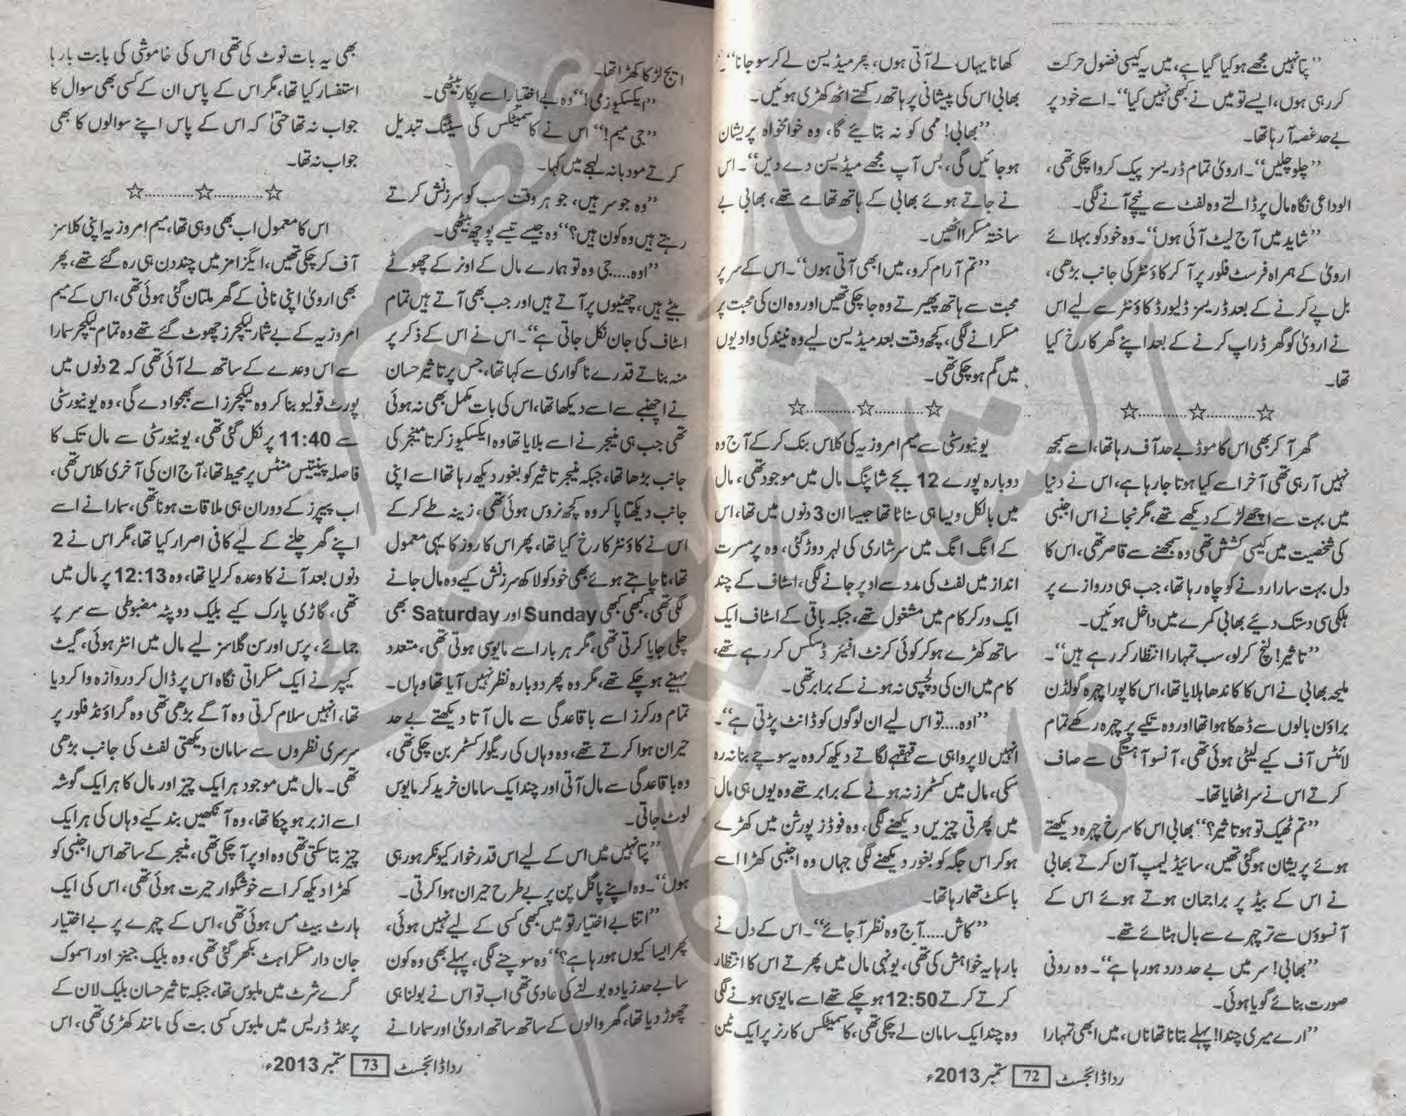 ’’پتا نہیں مجھے ہو کیا گیا ہے، میں یہ کیسی فضول حرکت
کر رہی ہوں، ایسے تو میں نے کبھی نہیں کیا‘‘۔ اسے خود پر
بے حد غصہ آ رہا تھا۔
’’چلو چلیں‘‘۔ ارویٰ تمام ڈریسز پیک کروا چکی تھی،
الوداعی نگاہ مال پر ڈالتے وہ لفٹ سے نیچے آنے لگی۔
’’شاید میں آج لیٹ آئی ہوں‘‘۔ وہ خود کو بہلائے
ارویٰ کے ہمراہ فرسٹ فلور پر آ کر کاؤنٹر کی جانب بڑھی،
بل پے کرنے کے بعد ڈریسز ڈلیورڈ کاؤنٹر سے لیے اس
نے ارویٰ کو گھر ڈراپ کرنے کے بعد اپنے گھر کا رخ کیا
تھا۔
☆..........☆..........☆
گھر آ کر بھی اس کا موڈ بے حد آف رہا تھا، اسے سمجھ
نہیں آ رہی تھی آخر اسے کیا ہوتا جا رہا ہے، اس نے دنیا
میں بہت سے اچھے لڑکے دیکھے تھے، مگر نجانے اس اجنبی
کی شخصیت میں کیسی کشش تھی وہ سمجھنے سے قاصر تھی، اس کا
دل بہت سارا رونے کو چاہ رہا تھا، جب ہی دروازے پر
ہلکی سی دستک دیئے بھابی کمرے میں داخل ہوئیں۔
’’تاثیر! لنچ کر لو، سب تمہارا انتظار کر رہے ہیں‘‘۔
ملیحہ بھابی نے اس کا کاندھا ہلایا تھا، اس کا پورا چہرہ گولڈن
براؤن بالوں سے ڈھکا ہوا تھا اور وہ تکیے پر چہرہ رکھے تمام
لائٹس آف کیے لیٹی ہوئی تھی، آنسو آہستگی سے صاف
کرتے اس نے سر اٹھایا تھا۔
’’تم ٹھیک تو ہو تاثیر؟‘‘ بھابی اس کا سرخ چہرہ دیکھتے
ہوئے پریشان ہو گئی تھیں، سائیڈ لیمپ آن کرتے بھابی
نے اس کے بیڈ پر براجمان ہوتے ہوئے اس کے
آنسوؤں سے تر چہرے سے بال ہٹائے تھے۔
’’بھابی! سر میں بے حد درد ہو رہا ہے‘‘۔ وہ رونی
صورت بنائے گویا ہوئی۔
’’ارے میری چندا! پہلے بتانا تھا ناں، میں ابھی تمہارا
کھانا یہاں لے آتی ہوں، پھر میڈیسن لے کر سو جانا‘‘۔
بھابی اس کی پیشانی پر ہاتھ رکھتے اٹھ کھڑی ہوئیں۔
’’بھابی! ممی کو نہ بتایئے گا، وہ خوامخواہ پریشان
ہو جائیں گی، بس آپ مجھے میڈیسن دے دیں‘‘۔ اس
نے جاتے ہوئے بھابی کے ہاتھ تھامے تھے، بھابی بے
ساختہ مسکرا اٹھیں۔
’’تم آرام کرو، میں ابھی آتی ہوں‘‘۔ اس کے سر پر
محبت سے ہاتھ پھیرتے وہ جا چکی تھیں اور وہ ان کی محبت پر
مسکرانے لگی، کچھ وقت بعد میڈیسن لیے وہ نیند کی وادیوں
میں گم ہو چکی تھی۔
☆..........☆..........☆
یونیورسٹی سے میم امروزیہ کی کلاس بنک کر کے آج وہ
دوبارہ پورے 12 بجے شاپنگ مال میں موجود تھی، مال
میں بالکل ویسا ہی سناٹا تھا جیسا ان 3 دنوں میں تھا، اس
کے انگ انگ میں سرشاری کی لہر دوڑ گئی، وہ پر مسرت
انداز میں لفٹ کی مدد سے اوپر جانے لگی، اسٹاف کے چند
ایک ورکر کام میں مشغول تھے، جبکہ باقی کے اسٹاف ایک
ساتھ کھڑے ہو کر کوئی کرنٹ افیئر ڈسکس کر رہے تھے،
کام میں ان کی دلچسپی نہ ہونے کے برابر تھی۔
’’اوہ....تو اس لیے ان لوگوں کو ڈانٹ پڑتی ہے‘‘۔
انہیں لاپرواہی سے قہقہے لگاتے دیکھ کر وہ یہ سوچے بنا نہ رہ
سکی، مال میں کسٹمرز نہ ہونے کے برابر تھے وہ یوں ہی مال
میں پھرتی چیزیں دیکھنے لگی، وہ فوڈز پورشن میں کھڑے
ہو کر اس جگہ کو بغور دیکھنے لگی جہاں وہ اجنبی کھڑا اسے
باسکٹ تھما رہا تھا۔
’’کاش.....آج وہ نظر آ جائے‘‘۔ اس کے دل نے
بارہا یہ خواہش کی تھی، یونہی مال میں پھرتے اس کا انتظار
کرتے کرتے 12:50 ہو چکے تھے اسے مایوسی ہونے لگی
وہ چند ایک سامان لے چکی تھی، کاسمیٹکس کارنر پر ایک ٹین
رداڈائجسٹ 72 ستمبر 2013ء
ایج لڑکا کھڑا تھا۔
’’ایکسکیوزمی!‘‘ وہ بے اختیار اسے پکار بیٹھی۔
’’جی میم!‘‘ اس نے کاسمیٹکس کی سیٹنگ تبدیل
کرتے مودبانہ لہجے میں کہا۔
’’وہ جو سر ہیں، جو ہر وقت سب کو سرزنش کرتے
رہتے ہیں وہ کون ہیں؟‘‘ وہ جیسے تیسے پوچھ بیٹھی۔
’’اوہ....جی وہ تو ہمارے مال کے اونر کے چھوٹے
بیٹے ہیں، چھٹیوں پر آتے ہیں اور جب بھی آتے ہیں تمام
اسٹاف کی جان نکل جاتی ہے‘‘۔ اس نے اس کے ذکر پر
منہ بناتے قدرے ناگواری سے کہا تھا، جس پر تاثیر حسان
نے اچنبے سے اسے دیکھا تھا، اس کی بات مکمل بھی نہ ہوئی
تھی جب ہی منیجر نے اسے بلایا تھا وہ ایکسکیوز کرتا منیجر کی
جانب بڑھا تھا، جبکہ منیجر تاثیر کو بغور دیکھ رہا تھا اسے اپنی
جانب دیکھتا پا کر وہ کچھ نروس ہوئی تھی، زینہ طے کر کے
اس نے کاؤنٹر کا رخ کیا تھا، پھر اس کا روز کا یہی معمول
تھا، نا چاہتے ہوئے بھی خود کو لاکھ سرزنش کیے وہ مال جانے
لگی تھی، کبھی کبھی Sunday اور Saturday بھی
چلی جایا کرتی تھی، مگر ہر بار اسے مایوسی ہوتی تھی، متعدد
مہینے ہو چکے تھے، مگر وہ پھر دوبارہ نظر نہیں آیا تھا وہاں۔
تمام ورکرز اسے باقاعدگی سے مال آتا دیکھتے بے حد
حیران ہوا کرتے تھے، وہ وہاں کی ریگولر کسٹمر بن چکی تھی،
وہ باقاعدگی سے مال آتی اور چند ایک سامان خرید کر مایوس
لوٹ جاتی۔
’’پتا نہیں میں اس کے لیے اس قدر خوار کیونکر ہو رہی
ہوں‘‘۔ وہ اپنے پاگل پن پر بے طرح حیران ہوا کرتی۔
’’اتنا بے اختیار تو میں کبھی کسی کے لیے نہیں ہوئی،
پھر ایسا کیوں ہو رہا ہے؟‘‘ وہ سوچنے لگی، پہلے بھی وہ کون
سا بے حد زیادہ بولنے کی عادی تھی اب تو اس نے بولنا ہی
چھوڑ دیا تھا، گھر والوں کے ساتھ ساتھ ارویٰ اور سمارا نے
بھی یہ بات نوٹ کی تھی اس کی خاموشی کی بابت بارہا
استفسار کیا تھا، مگر اس کے پاس ان کے کسی بھی سوال کا
جواب نہ تھا حتیٰ کہ اس کے پاس اپنے سوالوں کا بھی
جواب نہ تھا۔
☆..........☆..........☆
اس کا معمول اب بھی وہی تھا، میم امروزیہ اپنی کلاسز
آف کر چکی تھیں، ایگزامز میں چند دن ہی رہ گئے تھے، پھر
بھی ارویٰ اپنی نانی کے گھر ملتان گئی ہوئی تھی، اس کے میم
امروزیہ کے بے شمار لیکچرز چھوٹ گئے تھے وہ تمام لیکچرز سمارا
سے اس وعدے کے ساتھ لے آئی تھی کہ 2 دنوں میں
پورٹ فولیو بنا کر وہ لیکچرز اسے بھجوا دے گی، وہ یونیورسٹی
سے 11:40 پر نکل گئی تھی، یونیورسٹی سے مال تک کا
فاصلہ پینتیس منٹس پر محیط تھا، آج ان کی آخری کلاس تھی،
اب پیپرز کے دوران ہی ملاقات ہونا تھی، سمارا نے اسے
اپنے گھر چلنے کے لیے کافی اصرار کیا تھا، مگر اس نے 2
دنوں بعد آنے کا وعدہ کر لیا تھا، وہ 12:13 پر مال میں
تھی، گاڑی پارک کیے بلیک دوپٹہ مضبوطی سے سر پر
جمائے، پرس اور سن گلاسز لیے مال میں انٹر ہوئی، گیٹ
کیپر نے ایک مسکراتی نگاہ اس پر ڈال کر دروازہ وا کر دیا
تھا، انہیں سلام کرتی وہ آگے بڑھی تھی وہ گراؤنڈ فلور پر
سرسری نظروں سے سامان دیکھتی لفٹ کی جانب بڑھی
تھی۔ مال میں موجود ہر ایک چیز اور مال کا ہر ایک گوشہ
اسے ازبر ہو چکا تھا، وہ آنکھیں بند کیے وہاں کی ہر ایک
چیز بتا سکتی تھی وہ اوپر آ چکی تھی، منیجر کے ساتھ اس اجنبی کو
کھڑا دیکھ کر اسے خوشگوار حیرت ہوئی تھی، اس کی ایک
ہارٹ بیٹ مس ہوئی تھی، اس کے چہرے پر بے اختیار
جان دار مسکراہٹ بکھر گئی تھی، وہ بلیک جینز اور اسموک
گرے شرٹ میں ملبوس تھا، جبکہ تاثیر حسان بلیک لان کے
پرنٹڈ ڈریس میں ملبوس کسی بت کی مانند کھڑی تھی، اس
رداڈائجسٹ 73 ستمبر 2013ء